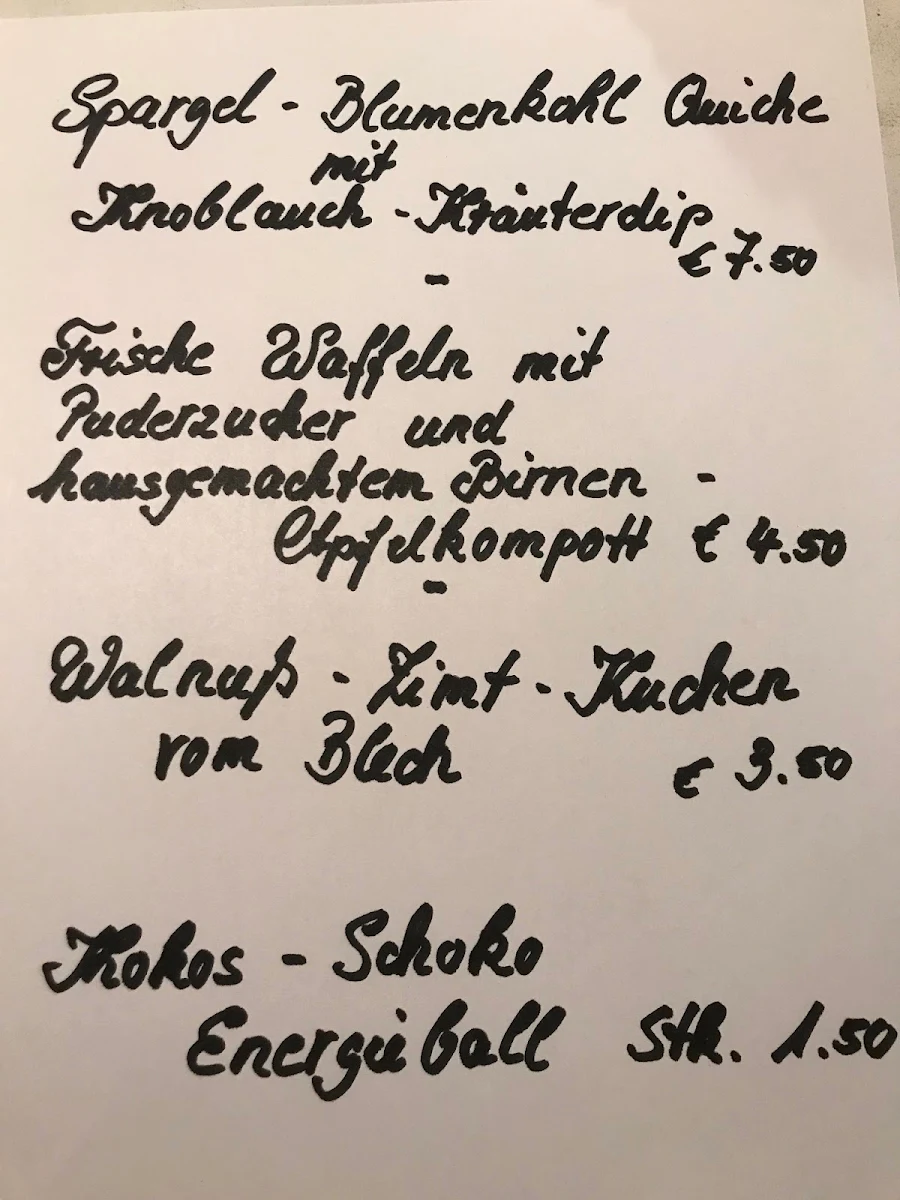 Spargel - Blumenkohl Quiche
mit
Knoblauch - Kräuterdip
€ 7.50
-
Frische Waffeln mit
Puderzucker und
hausgemachtem Birnen -
Apfelkompott € 4.50
-
Walnuß - Zimt - Kuchen
vom Blech € 3.50
Kokos - Schoko
Energieball Stk. 1.50